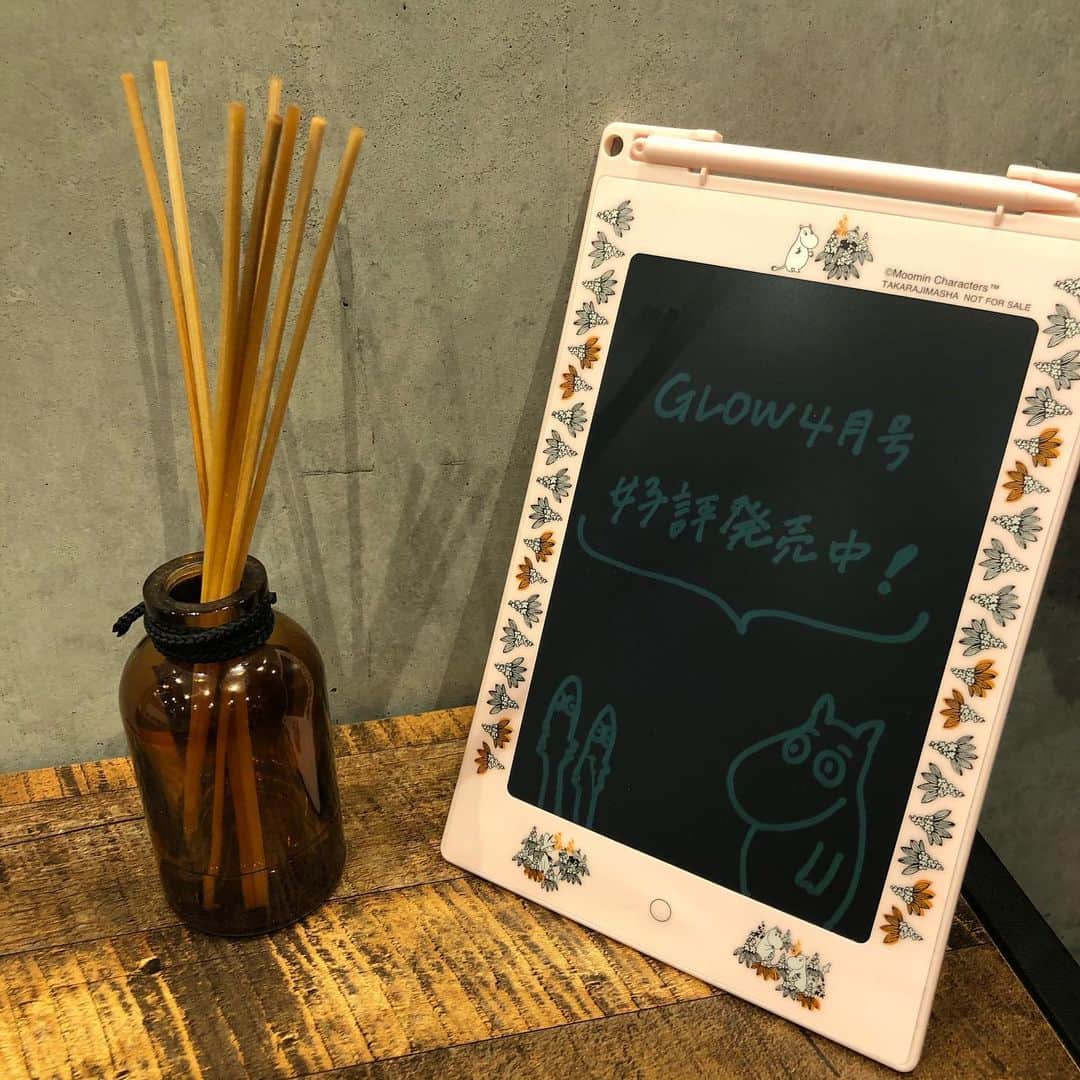 ©Moomin Characters™
TAKARAJIMASHA NOT FOR SALE
GLOW4月号
好評発売中！